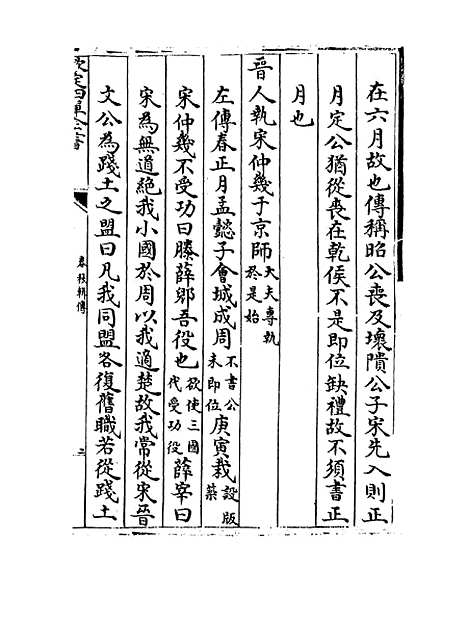 在六月故也傳稱昭公喪及壞隤公子宋先入則正
月定公猶從喪在乾侯不是即位缺禮故不須書正
月也
晉人執宋仲幾于京師大夫專執於是始
左傳春正月孟懿子會城成周不書公未即位庚寅栽設版築
宋仲幾不受功曰滕薛郳吾役也欲使三國代受功役薛宰曰
宋為無道絶我小國於周以我適楚故我常從宋晉
文公為踐土之盟曰凡我同盟各復舊職若從踐土
欽定四庫全書
春秋輯傳
三